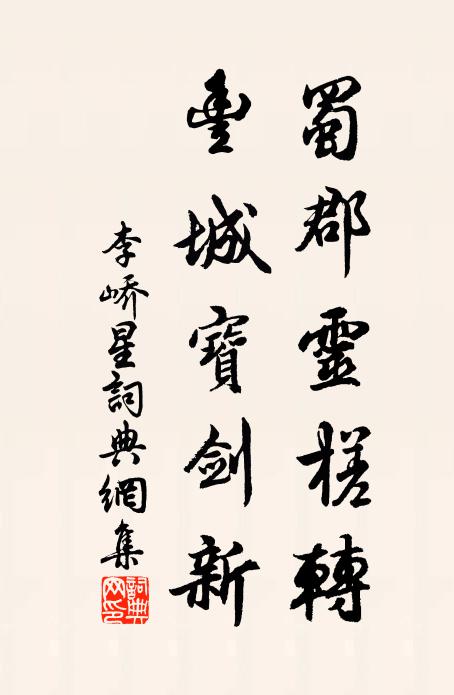 蜀郡靈槎轉
豐城寶劍新
李嶠星詞典網集
詞典網印